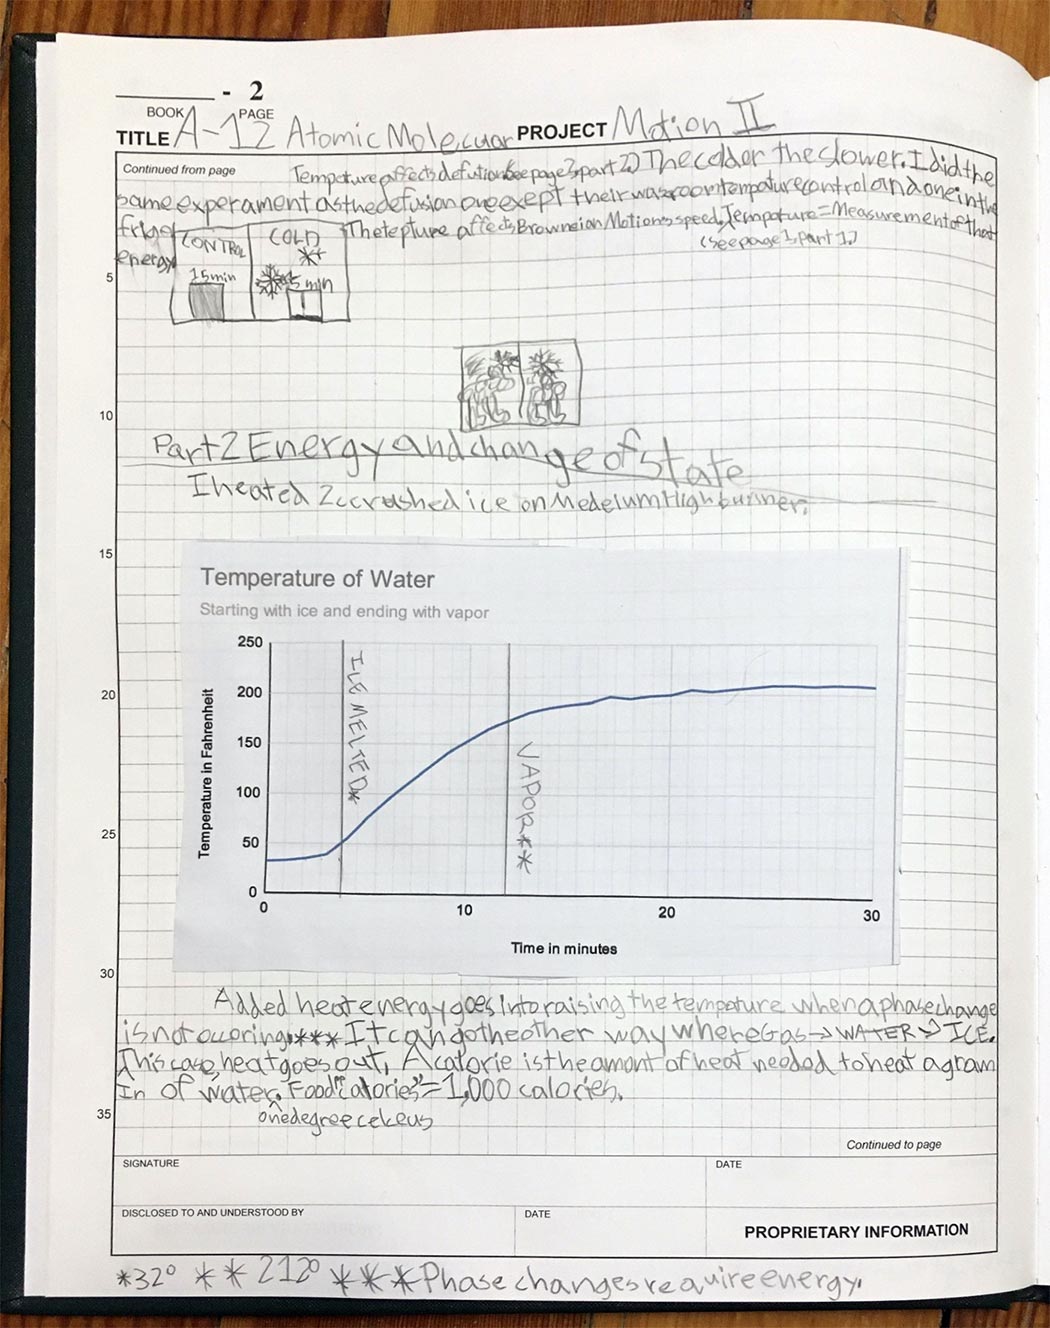 - 2
BOOK PAGE
TITLE A-12 Atomic Molecuar PROJECT Motion II
Continued from page
Tempature affects defution (see page 3, part 2) The colder the slower. I did the
same experament as the defusion one exept their was room tempature control and one in the
fridge. The tepture affects Browneian Motions speed, Tempature = Measurement of that
energy (see page 1, part 1.)
CONTROL COLD
15 min 15 min
Part 2 Energy and change of state
I heated 2c crushed ice on Medeium High burner.
Temperature of Water
Starting with ice and ending with vapor
250
200
150
100
50
0
Temperature in Fahrenheit
ICE MELTED*
VAPOR**
0 10 20 30
Time in minutes
Added heat energy goes into raising the tempature when a phase change
is not ouuring.*** It can go the other way where Gas → WATER → ICE.
In This case, heat goes out, A calorie is the amont of heat needed to heat a gram
of water. Food "Calories" = 1,000 calories.
one degree celceus
5
10
15
20
25
30
35
Continued to page
SIGNATURE DATE
DISCLOSED TO AND UNDERSTOOD BY DATE
PROPRIETARY INFORMATION
*32° **212° ***Phase changes require energy.